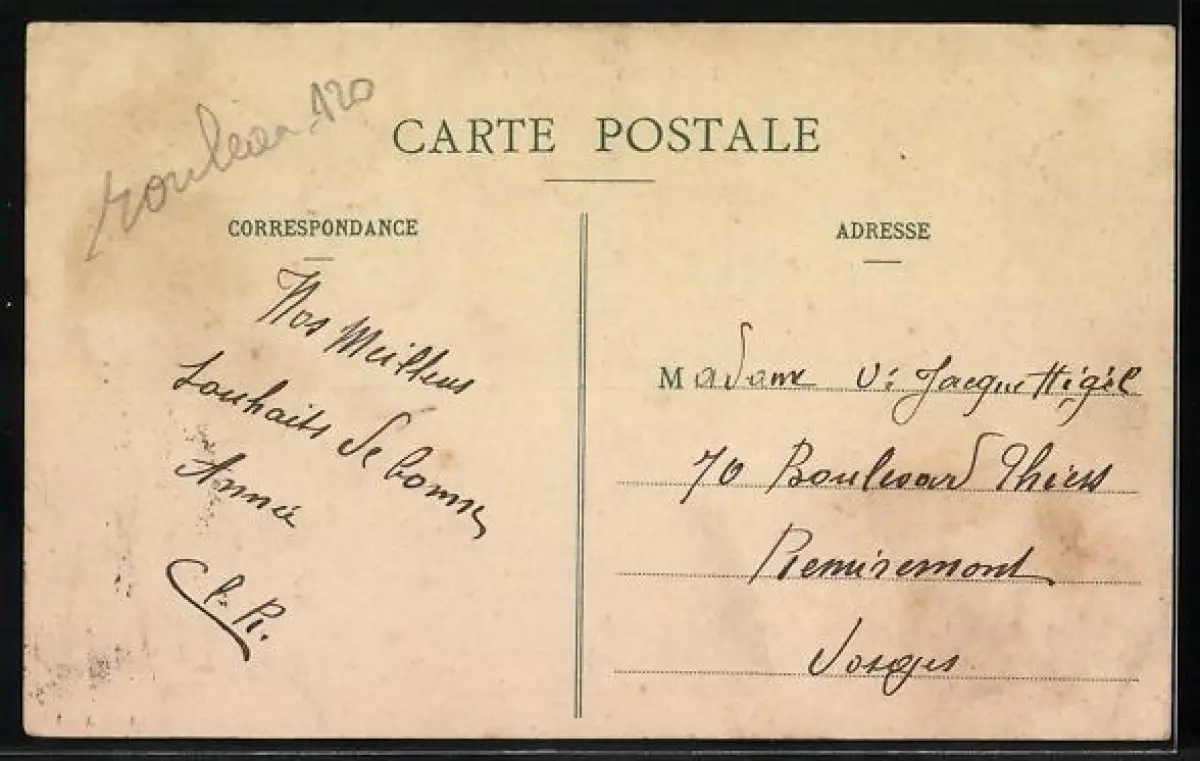 rouleau 120
CARTE POSTALE
CORRESPONDANCE
ADRESSE
Nos Meilleurs
Souhaits de bonne
Année
Madame Ve Jacque Higel
70 Boulevard Thiers
Remiremont
Vosges